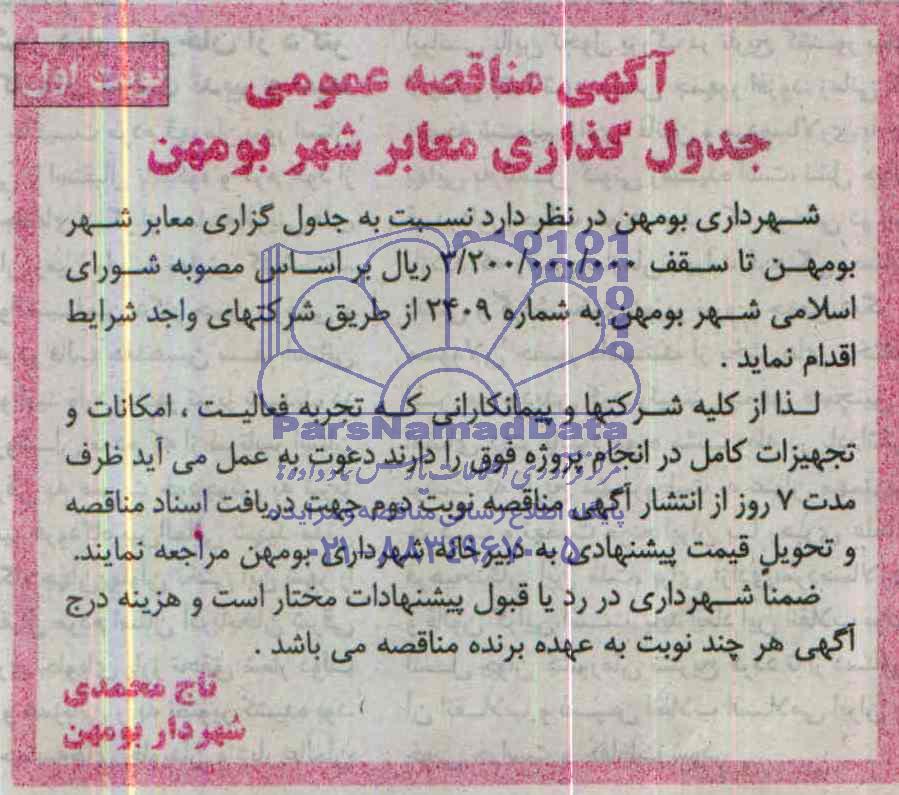 نوبت اول
آگهی مناقصه عمومی
جدول گذاری معابر شهر بومهن
شهرداری بومهن در نظر دارد نسبت به جدول گزاری معابر شهر
بومهن تا سقف ۳/۲۰۰/۰۰۰/۰۰۰ ریال بر اساس مصوبه شورای
اسلامی شهر بومهن به شماره ۲۴۰۹ از طریق شرکتهای واجد شرایط
اقدام نماید .
لذا از کلیه شرکتها و پیمانکارانی که تجربه فعالیت ، امکانات و
تجهیزات کامل در انجام پروژه فوق را دارند دعوت به عمل می آید ظرف
مدت ۷ روز از انتشار آگهی مناقصه نوبت دوم جهت دریافت اسناد مناقصه
و تحویل قیمت پیشنهادی به دبیرخانه شهرداری بومهن مراجعه نمایند.
ضمناً شهرداری در رد یا قبول پیشنهادات مختار است و هزینه درج
آگهی هر چند نوبت به عهده برنده مناقصه می باشد .
تاج محمدی
شهردار بومهن
ParsNamadData
پایگاه اطلاع رسانی مناقصه و مزایده